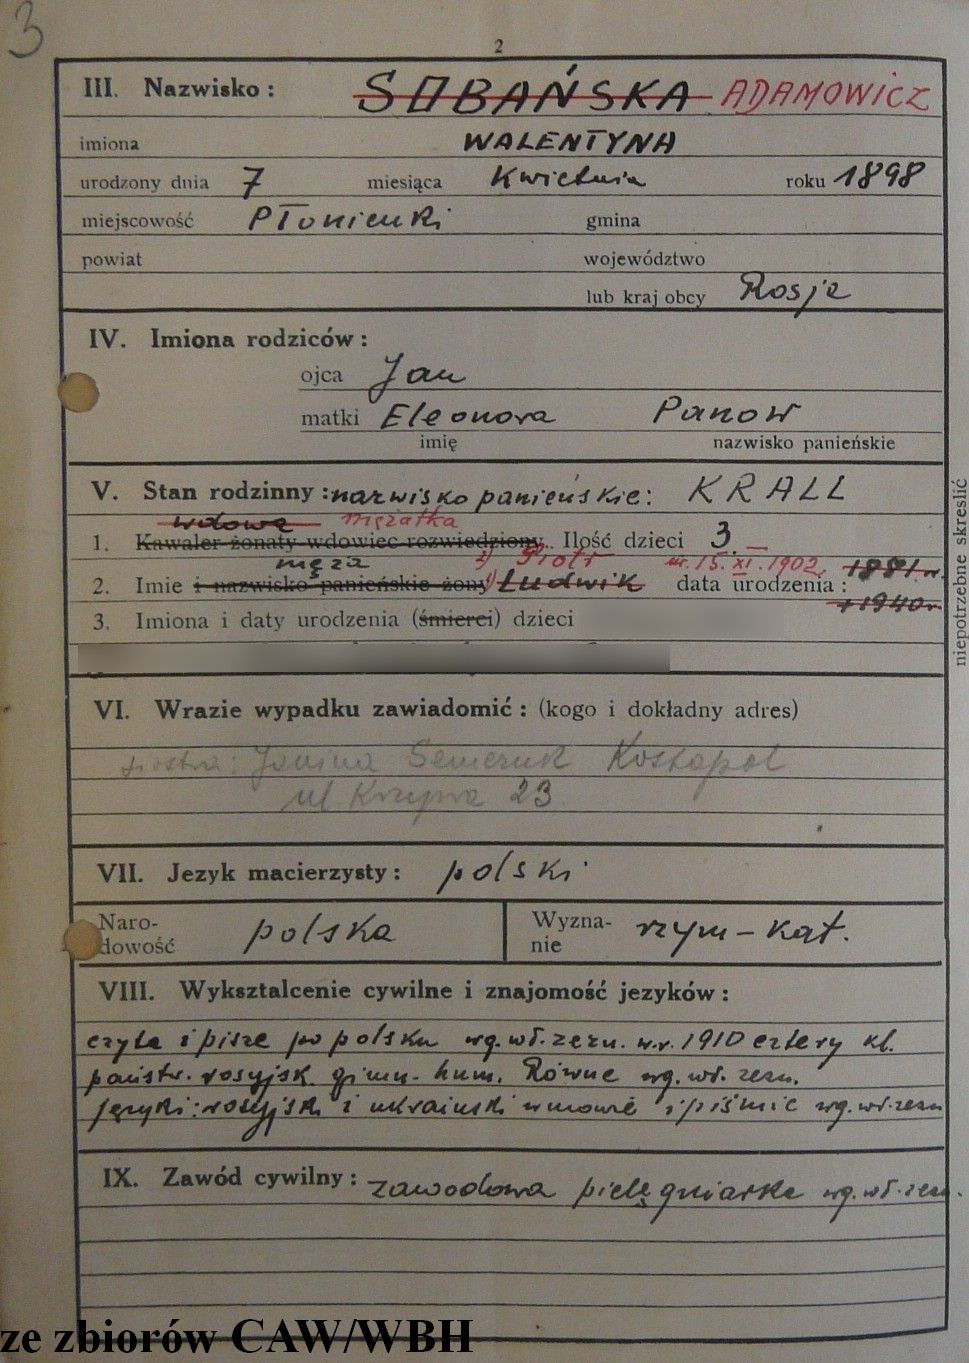 3
2
III. Nazwisko: SOBAŃSKA ADAMOWICZ
imiona WALENTYNA
urodzony dnia 7 miesiąca Kwietnia roku 1898
miejscowość PŁonienki gmina
powiat województwo
lub kraj obcy Rosja
IV. Imiona rodziców:
ojca Jan
matki Eleonora Panow
imię nazwisko panieńskie
V. Stan rodzinny: nazwisko panieńskie: KRALL
wdowa mężatka
1. Kawaler żonaty wdowiec rozwiedziony. Ilość dzieci 3.
męża 2) Piotr ur. 15. XI. 1902. 1881 r.
2. Imie i nazwisko panieńskie żony 1) Ludwik data urodzenia: +1940 r
3. Imiona i daty urodzenia (śmierci) dzieci
niepotrzebne skreślić
VI. Wrazie wypadku zawiadomić: (kogo i dokładny adres)
siostra: Janina Semeruk Kostopol
ul. Krzywa 23.
VII. Jezyk macierzysty: polski
Narodowość polska Wyznanie rzym-kat.
VIII. Wyksztalcenie cywilne i znajomość jezyków:
czyta i pisze po polsku wg. wł. zezn. w r. 1910 cztery kl.
państw. rosyjsk. gimn. hum. Równe wg. wł. zezn.
Języki: rosyjski i ukraiński w mowie i piśmie wg. wł. zezn
IX. Zawód cywilny: zawodowa pielęgniarka wg. wł. zezn.
ze zbiorów CAW/WBH